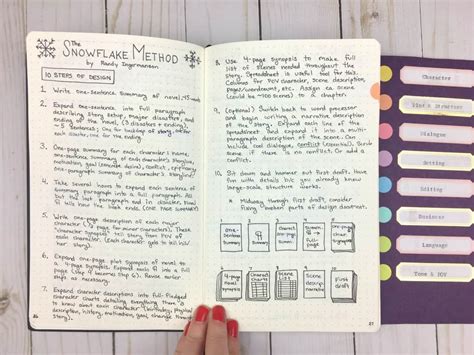 The
SNOWFLAKE METHOD
by Randy Ingermanson
10 STEPS OF DESIGN
1. Write one-sentence summary of novel.
2. Expand one-sentence into full paragraph
describing Story setup, major disasters and
ending of the novel. (3 disasters + ending)
~ 5 Sentences: One for backdrop of story,
each disaster, one for the ending
3. One-page summary for each character's name,
one-sentence summary of character's storyline,
motivation, goal, conflict, epiphany,
one-paragraph summary of character's storyline.
4. Take several hours to expand each sentence of
summary into a full paragraph. All
but the last paragraph end in disaster. Final
one tells the ending. (one page summary)
5. Write one-page description of each major
character (½ page for minor characters). These
"character synopses" tell story from POV
of each character.
6. Expand one-page plot synopsis of novel to
a 4-page synopsis. Expand each ¶ into a full
page. Revise earlier
steps as necessary.
7. Expand character descriptions into full-fledged
character charts detailing everything there is
to know about each character (birthday, physical
description, history, motivation, goal, change through
story).
26
8. Use 4-page synopsis to make full
list of scenes needed throughout the
story. Spreadsheet is useful tool for this.
Columns for POV character, scene description,
page/wordcount, etc. Assign each scene
(could be ~100 scenes) to a chapter.
9. (Optional) Switch back to word processor
and begin writing a narrative description
of the story. Expand each line of the
spreadsheet and expand it into a multi-
paragraph description of the scene. Can
include cool dialogue, conflict (essential). Scrub
scene if there is no conflict. Or add a
conflict.
10. Sit down and hammer out first draft. Have
fun with details b/c you already know
large-scale structure works.
* Midway through first draft, consider
fixing broken parts of design document.
one-sentence summary
¶ summary
one-page summary
4-page novel synopsis
Character charts
Scene List
Scene design narrative
First draft
27
Character
Plot & Structure
Dialogue
Setting
Editing
Business
Language
Tone & POV